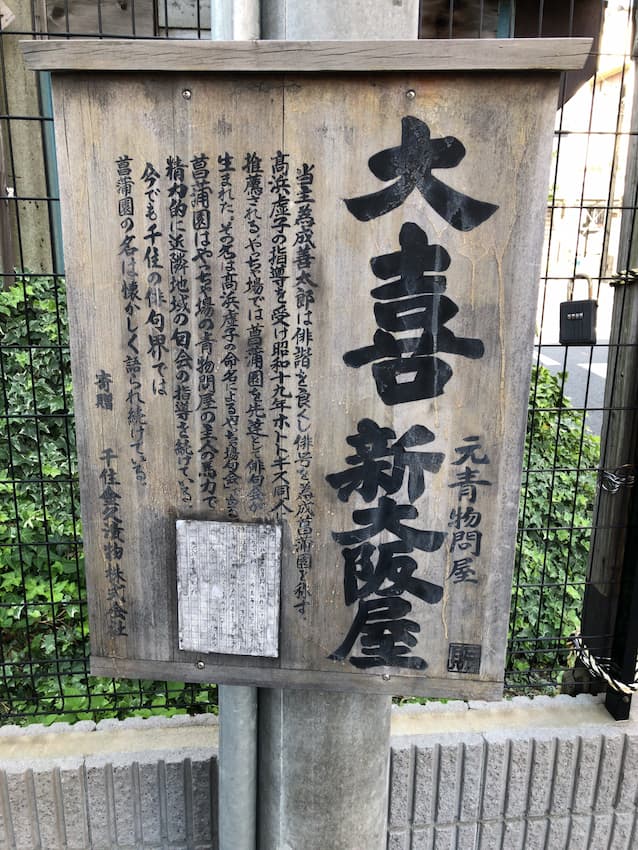 元青物問屋
大喜 新大阪屋
当主為成善太郎は俳諧を良くし俳号を為成菖蒲園と称す
高浜虚子の指導を受け昭和十九年ホトトギス同人に
推薦されるやっちゃ場では菖蒲園を先達として俳句会が
生まれた、その名は高浜虚子の命名によるやっちゃ場句会である
菖蒲園はやっちゃ場の青物問屋の主人の馬力で
精力的に近隣地域の句会の指導を続けている
今でも千住の俳句界では
菖蒲園の名は懐かしく語られ続けている。
寄贈 千住金久漬物株式会社